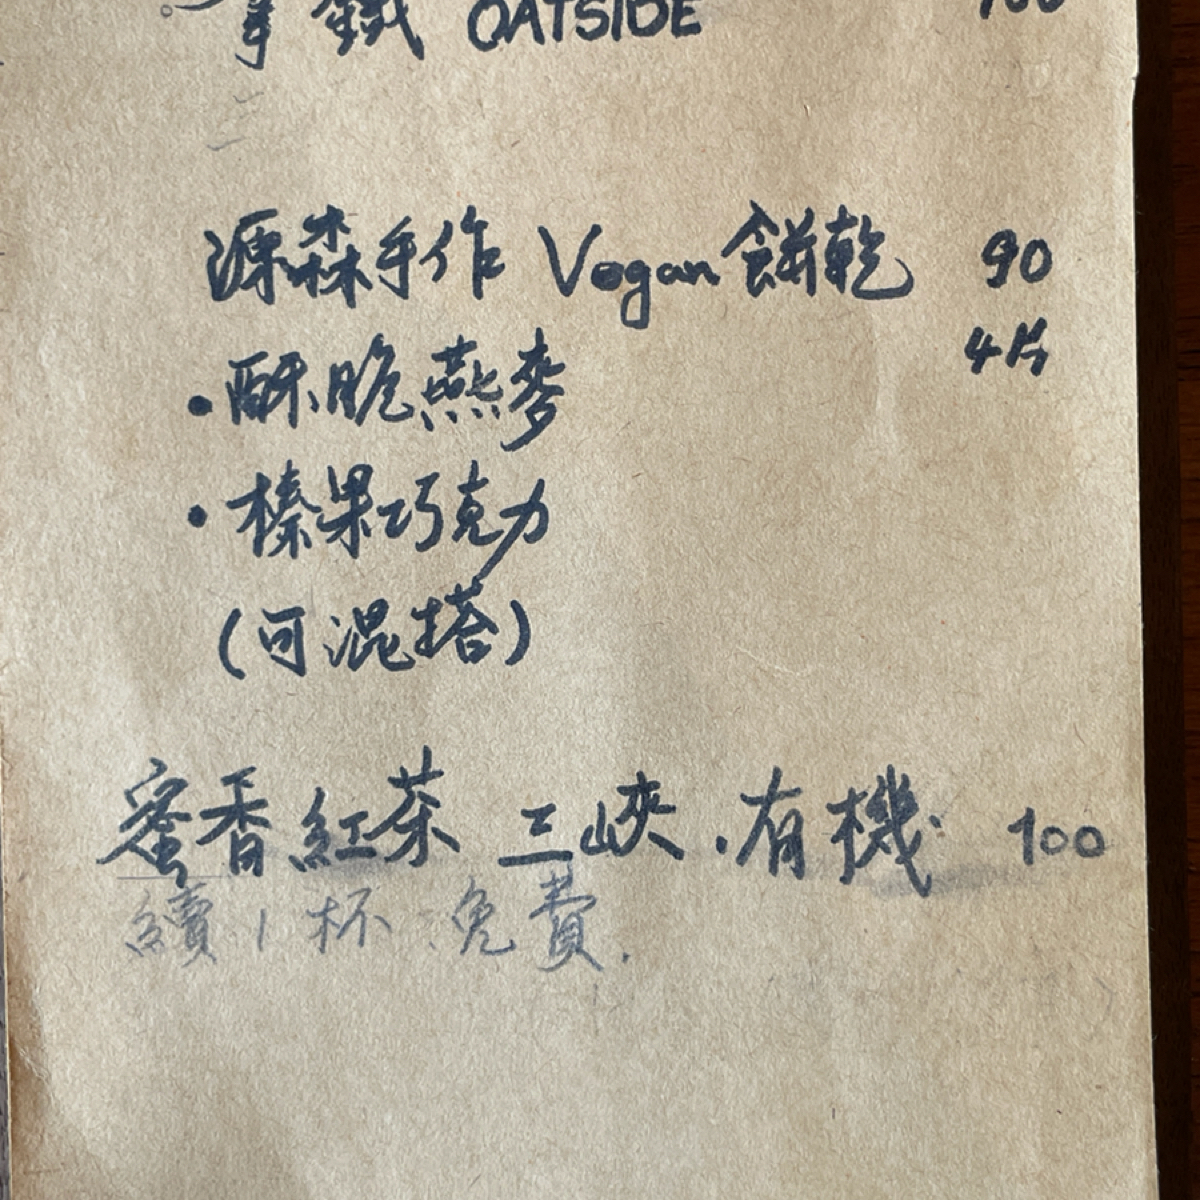 拿鐵 OATSIDE
源森手作 Vegan 餅乾 90
4片
•酥脆燕麥
•榛果巧克力
(可混搭)
蜜香紅茶 三峽．有機 100
續1杯 免費.